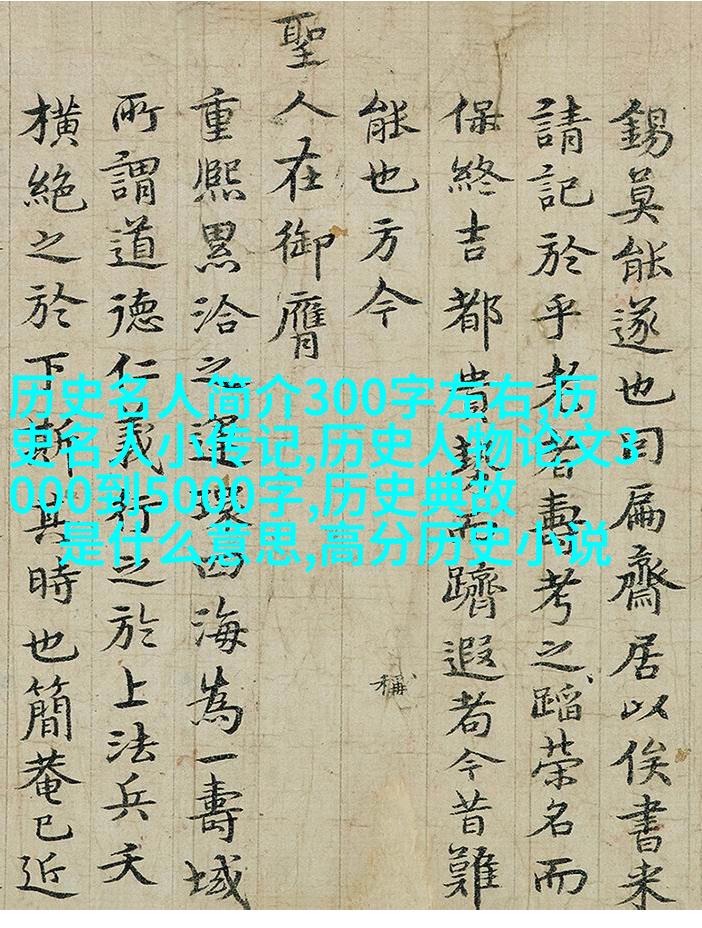 錫莫能遂也曰扁齋居以俟書来
請記於乎老者壽考之蹈榮名而
保終吉都貴而躋遐耇今昔難
能也方今
稱
聖人在御膺
重熙累洽之運環四海為一壽域
所謂道德仁義行之於上法兵夭
横絶之於下斯其時也簡菴已近
历史名人简介300字左右,历
史名人小传记,历史人物论文3
000到5000字,历史典故
是什么意思,高分历史小说